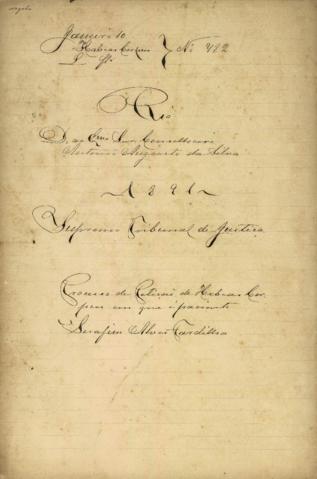 Janeiro 10
Habeas Corpus } Nº 482
Rio
D. ao Exmo Snr. Conselheiro
Antonio Augusto da Silva
1891
Supremo Tribunal de Justiça
Processo de Petição de Habeas Cor-
pus em que é paciente
Serafim Alves